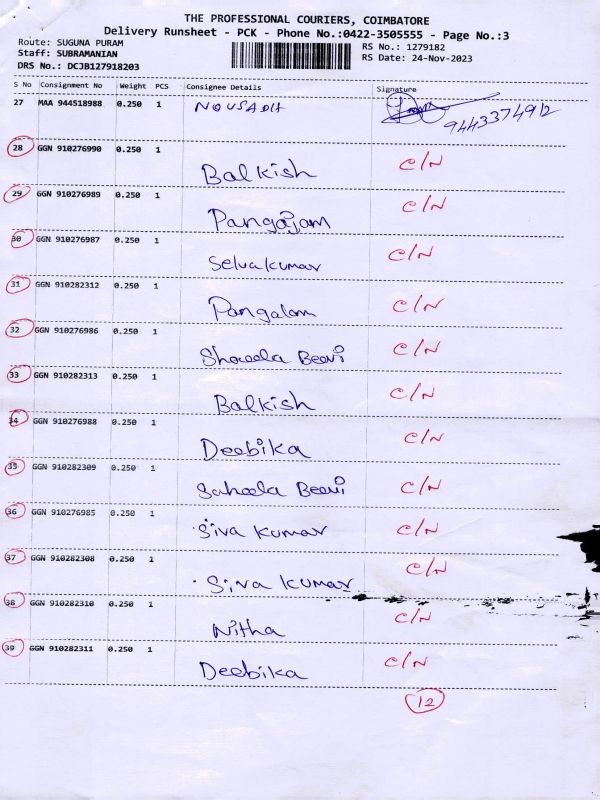 THE PROFESSIONAL COURIERS, COIMBATORE
Delivery Runsheet - PCK - Phone No.:0422-3505555 - Page No.:3
Route: SUGUNA PURAM
Staff: SUBRAMANIAN
DRS No.: DCJB127918203
RS No.: 1279182
RS Date: 24-Nov-2023
S No Consignment No Weight PCS Consignee Details Signature
27 MAA 944518988 0.250 1 NOUSADH 9443374912
28 GGN 910276990 0.250 1 Balkish C/N
29 GGN 910276989 0.250 1 Pangajam C/N
30 GGN 910276987 0.250 1 Selvakumar C/N
31 GGN 910282312 0.250 1 Pangalam C/N
32 GGN 910276986 0.250 1 Shaeela Beevi C/N
33 GGN 910282313 0.250 1 Balkish C/N
34 GGN 910276988 0.250 1 Deebika C/N
35 GGN 910282309 0.250 1 Saheela Beevi C/N
36 GGN 910276985 0.250 1 Siva Kumar C/N
37 GGN 910282308 0.250 1 Siva Kumar C/N
38 GGN 910282310 0.250 1 Nitha C/N
39 GGN 910282311 0.250 1 Deebika C/N
12